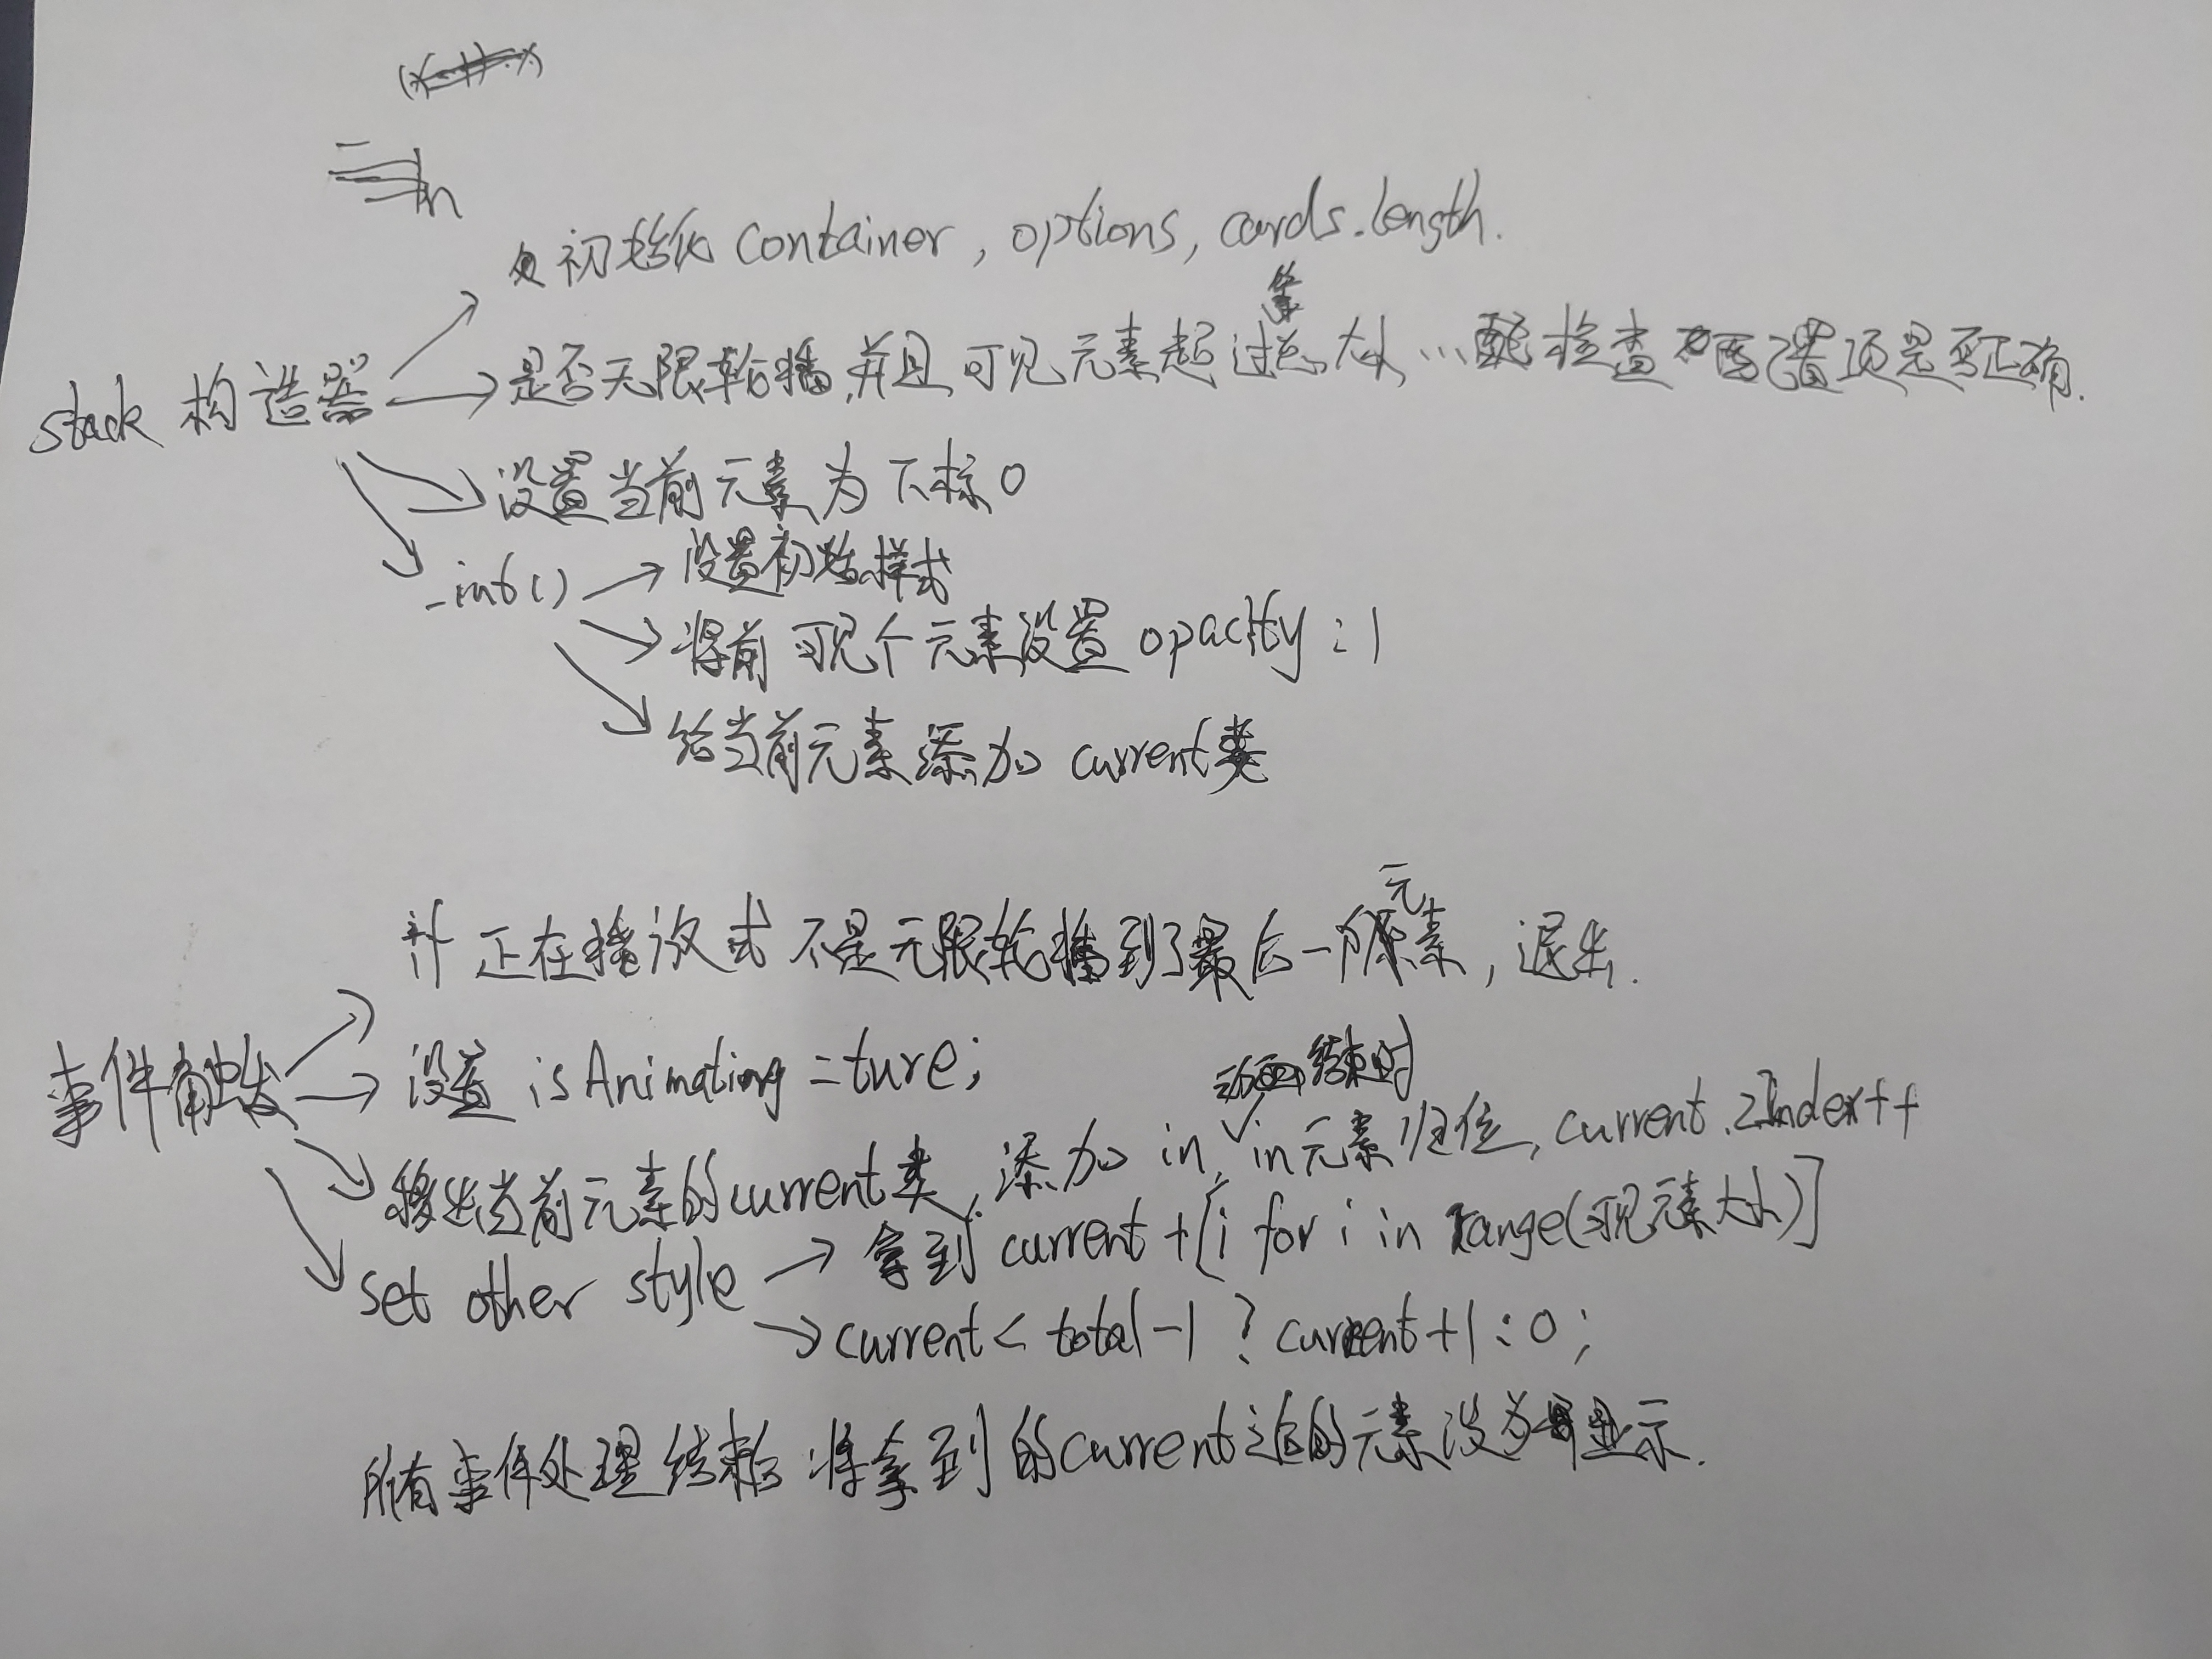 初始化 container, options, cards.length.
stack 构造器
是否无限轮播,并且可见元素超过总大小,... 检查配置项是否正确.
设置当前元素为下标0
_init()
设置初始样式
将前可见个元素设置 opacity : 1
给当前元素添加 current类
正在播放或不是无限轮播到了最后一个元素, 退出.
事件触发
设置 isAnimating = ture;
动画结束时
移出当前元素的current类, 添加 in, in元素归位, current.zIndex++
set other style
拿到 current + [i for i in range(可见元素大小)]
current < total-1 ? current+1 : 0 ;
所有事件处理结束后 将拿到的current之后的元素设为显示.